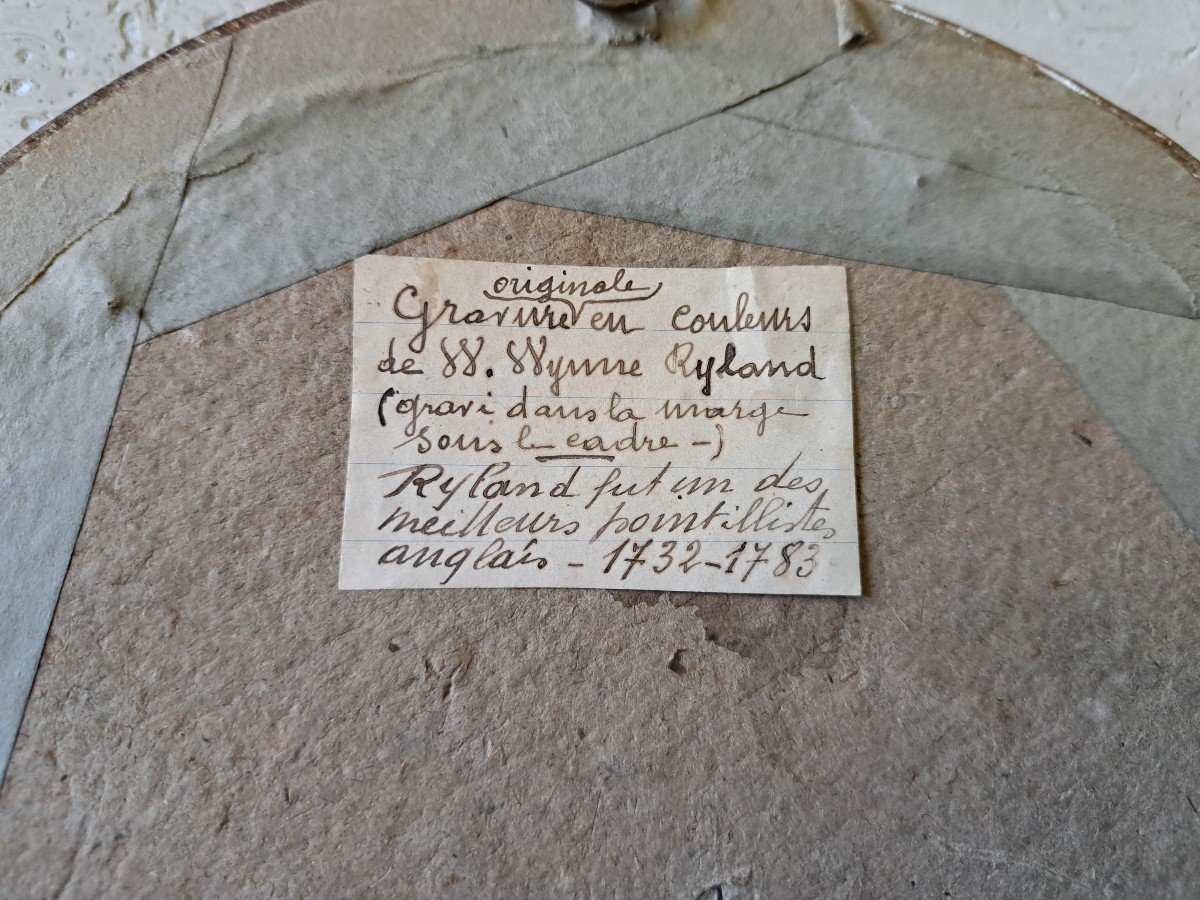 originale
Gravure en couleurs
de W. Wynne Ryland
(gravé dans la marge
sous le cadre -)
Ryland fut un des
meilleurs pointillistes
anglais - 1732-1783